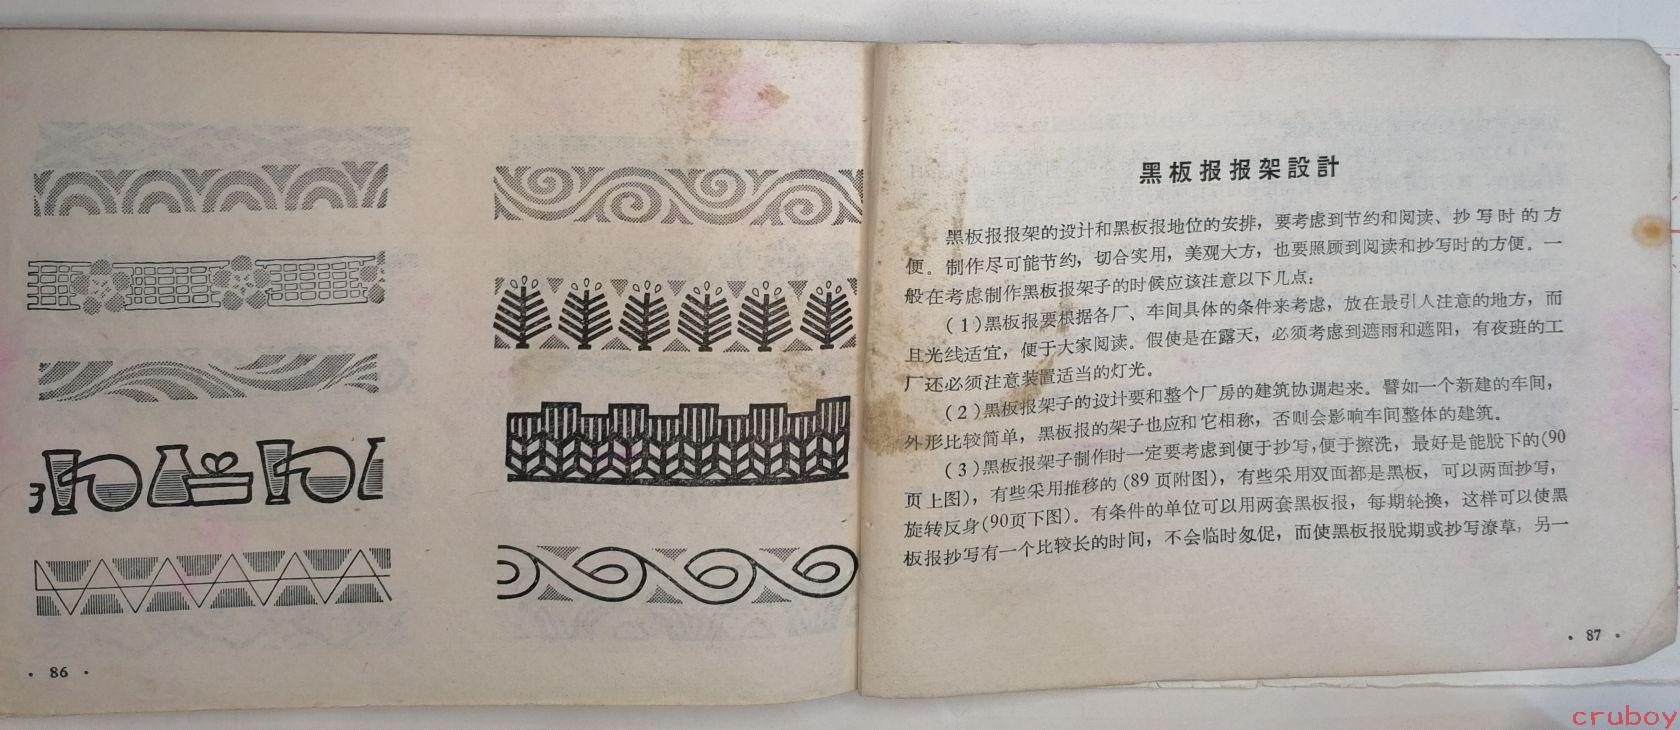 · 86 ·
黑板报报架設計
黑板报报架的设计和黑板报地位的安排，要考虑到节约和阅读、抄写时的方
便。制作尽可能节约，切合实用，美观大方，也要照顾到阅读和抄写时的方便。一
般在考虑制作黑板报架子的时候应该注意以下几点：
（1）黑板报要根据各厂、车间具体的条件来考虑，放在最引人注意的地方，而
且光线适宜，便于大家阅读。假使是在露天，必须考虑到遮雨和遮阳，有夜班的工
厂还必须注意装置适当的灯光。
（2）黑板报架子的设计要和整个厂房的建筑协调起来。譬如一个新建的车间，
外形比较简单，黑板报的架子也应和它相称，否则会影响车间整体的建筑。
（3）黑板报架子制作时一定要考虑到便于抄写，便于擦洗，最好是能脱下的（90
页上图），有些采用推移的（89页附图），有些采用双面都是黑板，可以两面抄写，
旋转反身（90页下图）。有条件的单位可以用两套黑板报，每期轮换，这样可以使黑
板报抄写有一个比较长的时间，不会临时匆促，而使黑板报脱期或抄写潦草，另一
· 87 ·
cruboy